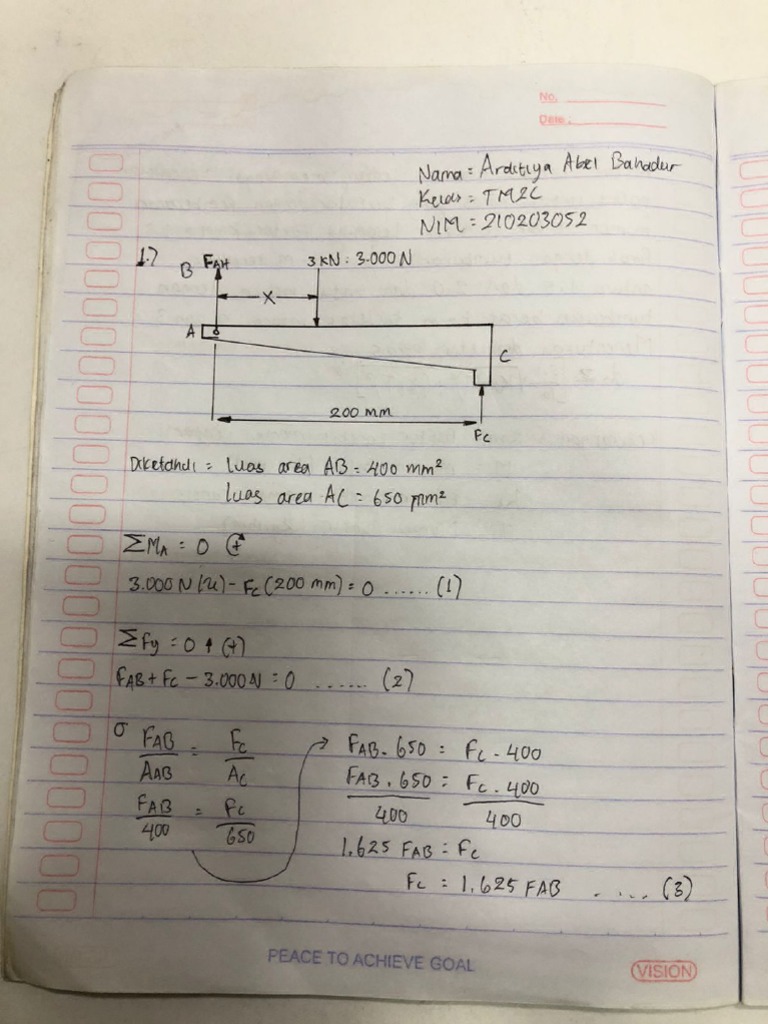 No.
Date.
Nama = Arditiya Abel Bahadur
Kelas = TM2C
NIM = 210203052
1.)
B FAH 3 KN : 3.000 N
X
A
C
200 mm
Fc
Diketahui = luas area AB = 400 mm²
luas area AC = 650 mm²
ΣMA = 0 (+
3.000 N (x) - Fc (200 mm) = 0 ...... (1)
ΣFy = 0 ↑ (+)
FAB + Fc - 3.000 N = 0 ...... (2)
σ FAB/AAB = Fc/Ac
FAB/400 = Fc/650
FAB . 650 = Fc . 400
FAB . 650/400 = Fc . 400/400
1.625 FAB = Fc
Fc = 1.625 FAB ..... (3)
PEACE TO ACHIEVE GOAL
VISION